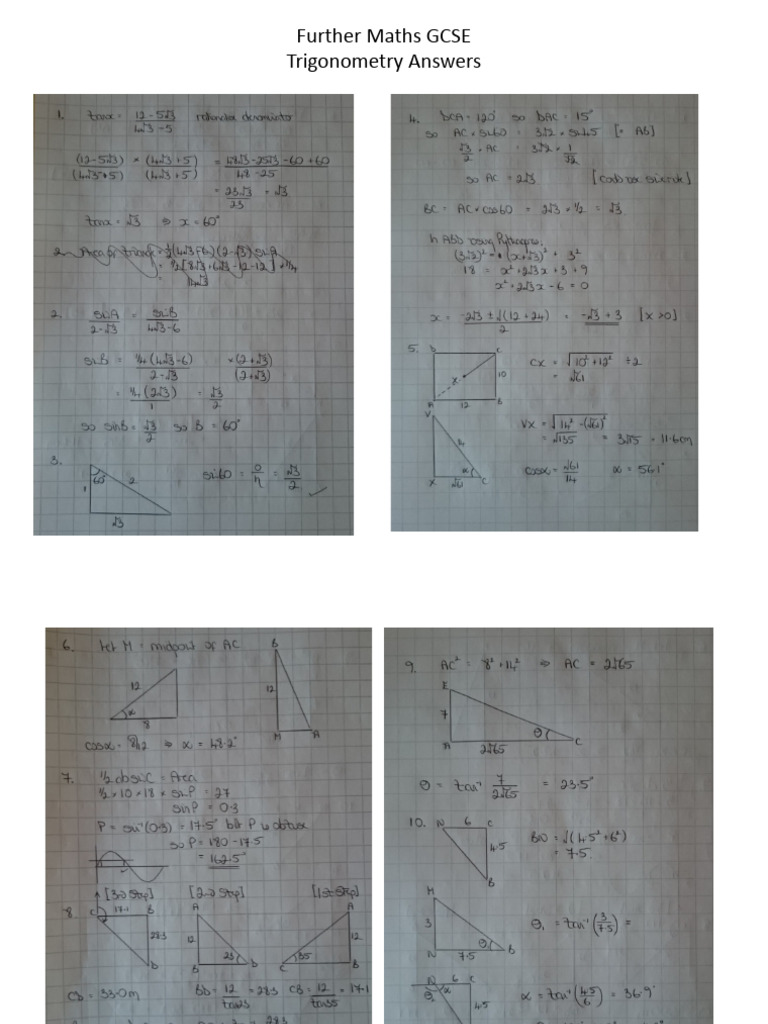 Further Maths GCSE
Trigonometry Answers
1. tanx = 12 - 5√3 / 4√3 - 5
(12-5√3) / (4√3-5) × (4√3+5) / (4√3+5) = 48√3 - 25√3 - 60 + 60 / 48 - 25
= 23√3 / 23 = √3
tanx = √3 ⇒ x = 60°
2. sinA / 2-√3 = sinB / 4√3-6
sinB = ¼(4√3-6) / 2-√3 ×(2+√3) / (2+√3)
= ¼(2√3) / 1 = √3 / 2
so sinB = √3 / 2 so B = 60°
3.
60° 2
1
√3
sin60 = O / H = √3 / 2
4. = 120° so = 15°
so AC × sin60 = 3√2 × sin45 [= AB]
√3 / 2 × AC = 3√2 × 1 / √2
so AC = 2√3
BC = AC × cos60 = 2√3 × ½ = √3
In ABD using Pythagoras:
(3√2)² = (x+√3)² + 3²
18 = x² + 2√3x + 3 + 9
x² + 2√3x - 6 = 0
x = -2√3 ± √(12 + 24) / 2 = -√3 + 3 [x >0]
5.
10
12
CX = √10² + 12² ÷2
= √61
VX = √14² - (√61)²
= √135 = 3√15 = 11.6cm
cosα = √61 / 14 α = 56.1°
6. Let M = midpoint of AC
12
8
B
12
M A
cosx = 8/12 ⇒ x = 48.2°
7. ½absinC = Area
½ × 10 × 18 × sinP = 27
sinP = 0.3
P = sin⁻¹(0.3) = 17.5° but P is obtuse
so P = 180 - 17.5
= 162.5°
8 [3rd Step] [2nd Step] [1st Step]
C 17.1 B
28.3
D
A
12
23
B D
A
12
35
C B
CD = 33.0m BD = 12 / tan23 = 28.3 CB = 12 / tan35 = 17.1
9. AC² = 8² + 14² ⇒ AC = 2√65
E
7
θ
A C
2√65
θ = tan⁻¹ 7 / 2√65 = 23.5°
10. N 6 C
4.5
B
BN = √(4.5² + 6²)
= 7.5
M
3
θ
N B
7.5
θ₁ = tan⁻¹(3 / 7.5) =
N 6 C
α
4.5
α = tan⁻¹(4.5 / 6) = 36.9°